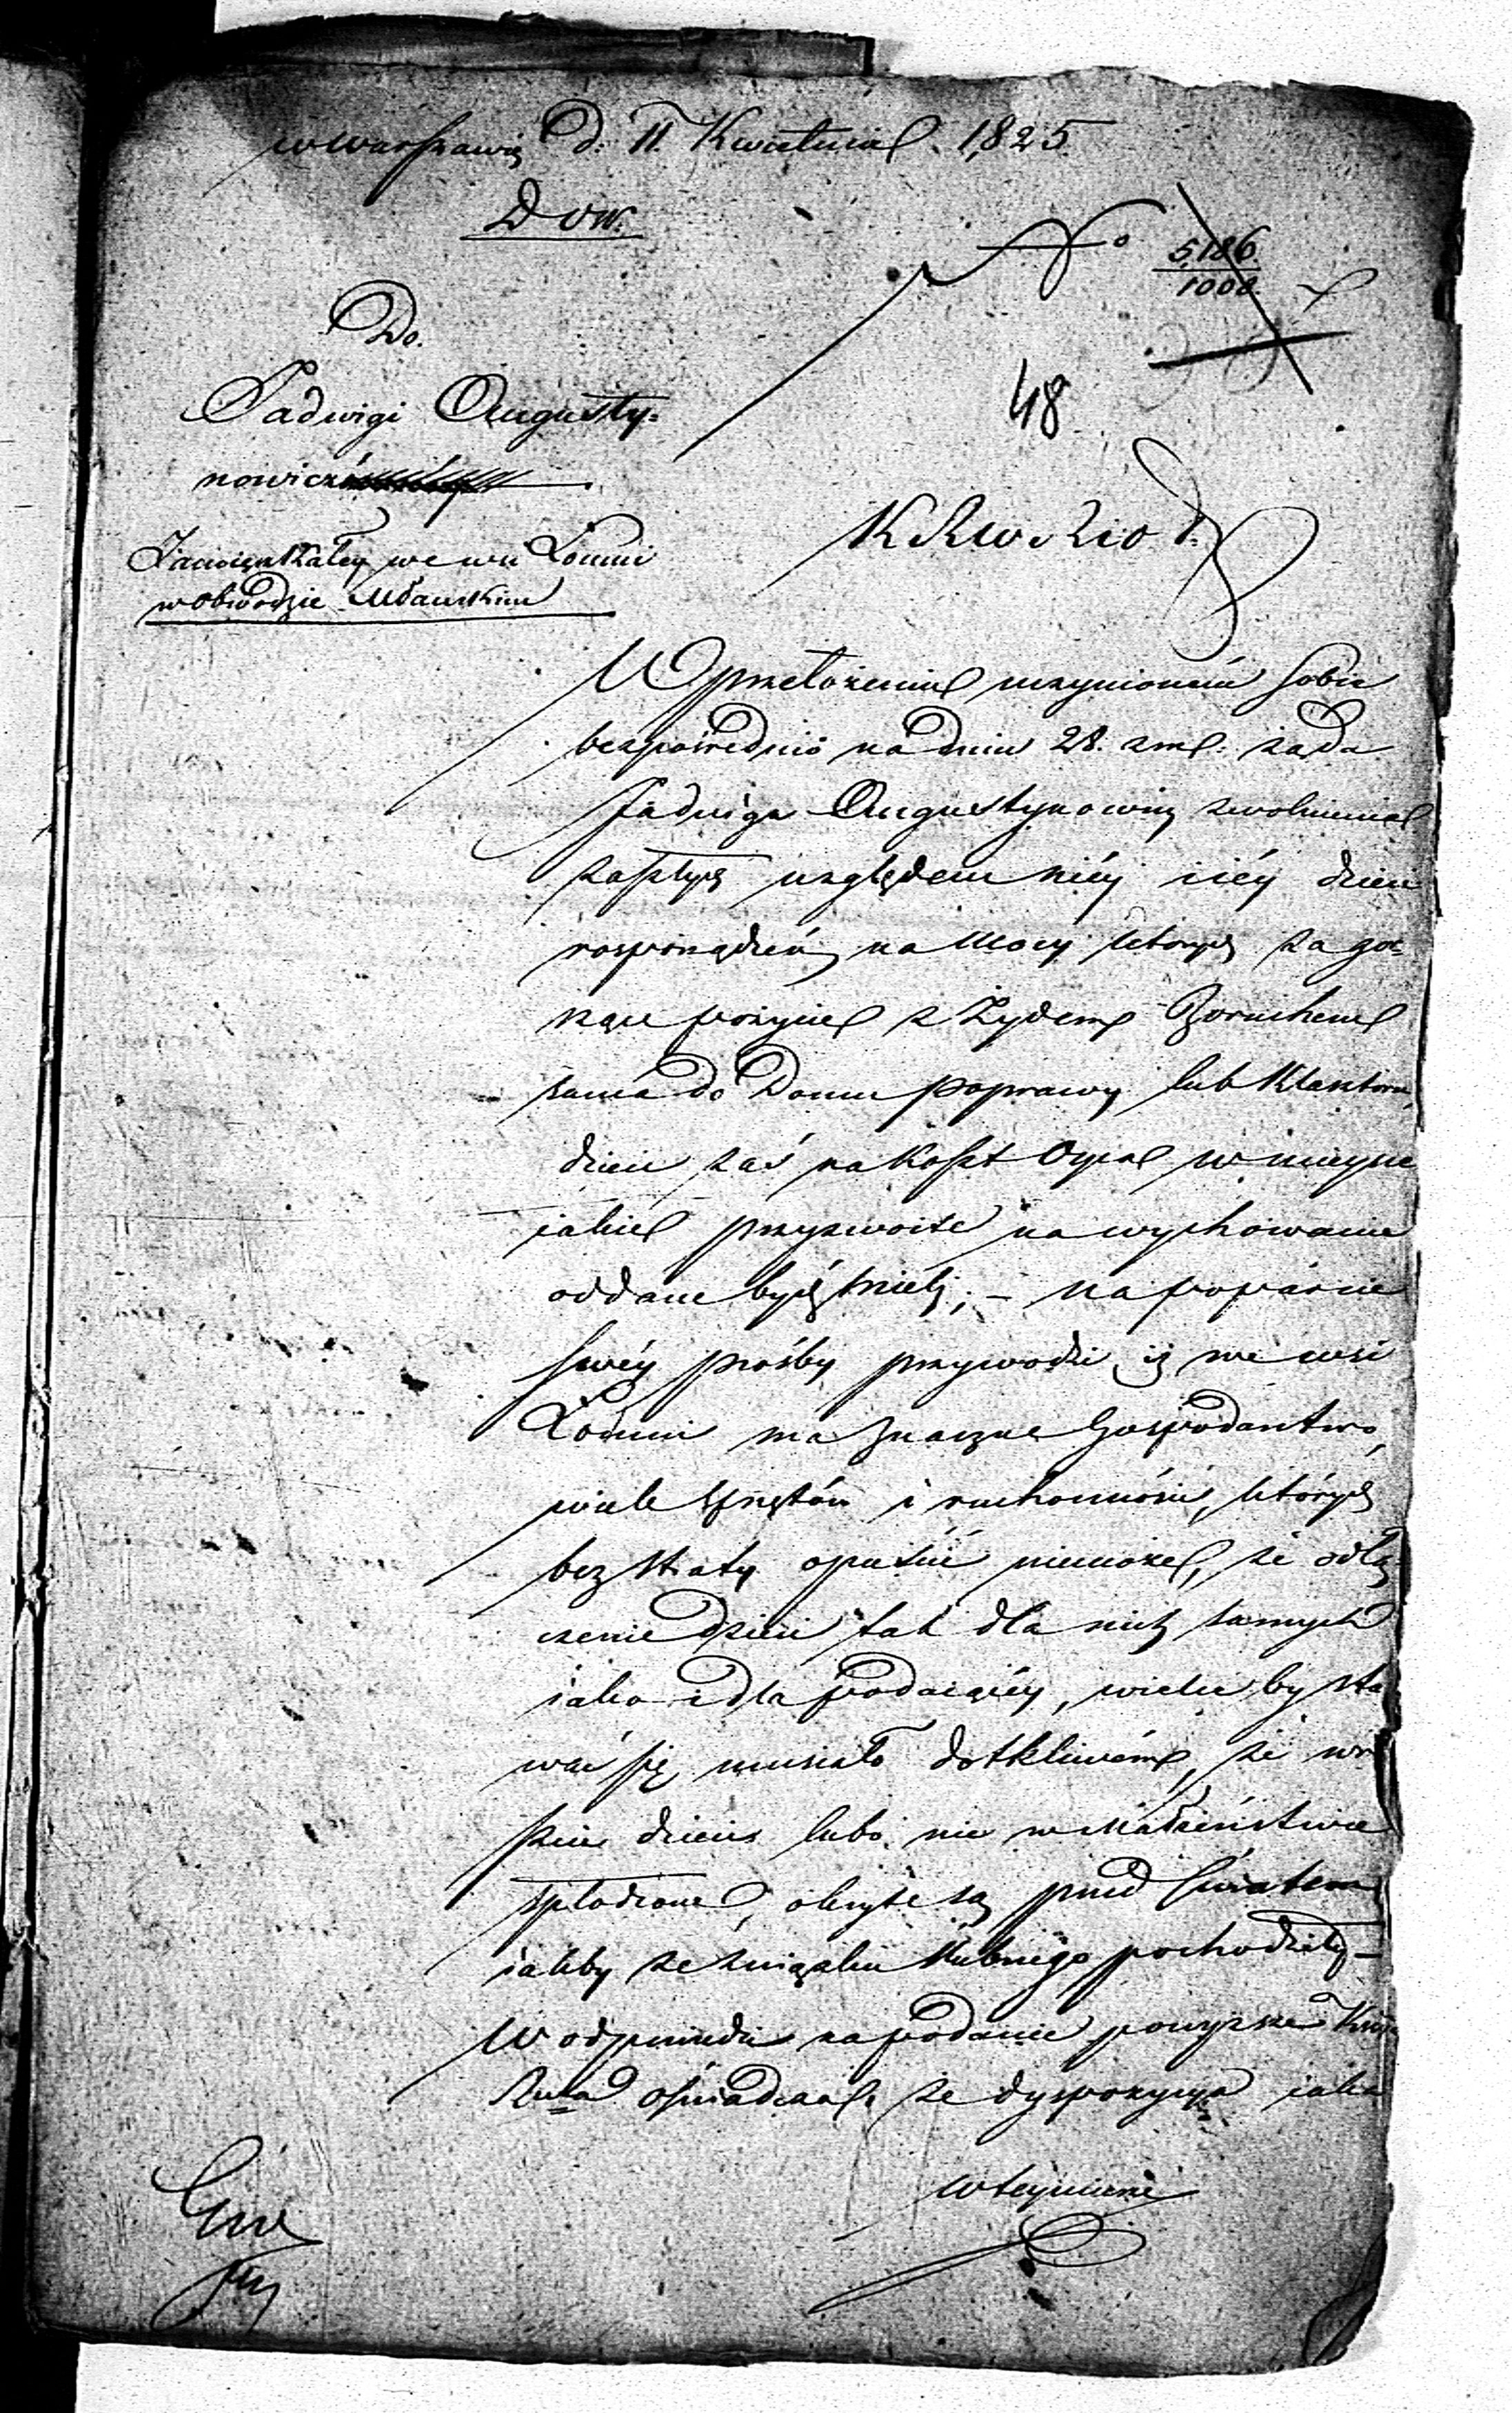 w Warszawie d. 11. Kwietnia 1825.
Dow.
No 5186.
1000
Do.
48
Jadwigi Augusty=
nowicz
K. R. W. R. i O. P.
Zamieszkałey we wsi Łomni
w Obwodzie Mławskim
W przełożeniu uczynioném sobie
bezpośrednio na dniu 28. z. m. żąda
Jadwiga Augustynowicz zwolnienia
zaszłych względem niéy i iéy dzieci
rosporządzeń, na mocy których za gor=
szące pożycie z Żydem Boruchem
sama do Domu poprawy lub Klasztoru,
dzieci zaś na koszt Oyca w mieysce
iakie przyzwoite na wychowanie
oddane bydź mieli; – na poparcie
swéy prośby przywodzi iż we wsi
Łomni ma znaczne Gospodarstwo,
wiele sprzętów i ruchomości, których
bez straty opuścić niemoże, że odłą
czenie dzieci tak dla nich samych
iako i dla podaiącéy, wielce by sta
wać się musiało dotkliwém, że wre
szcie dzieci lubo nie w Małżeństwie
spłodzone, okryte są przed światem
iakby ze związku ślubnego pochodziły –
W odpowiedzi na podanie powyższe Kom
Rząd oświadcza, że dyspozycya iaka
w téymierze